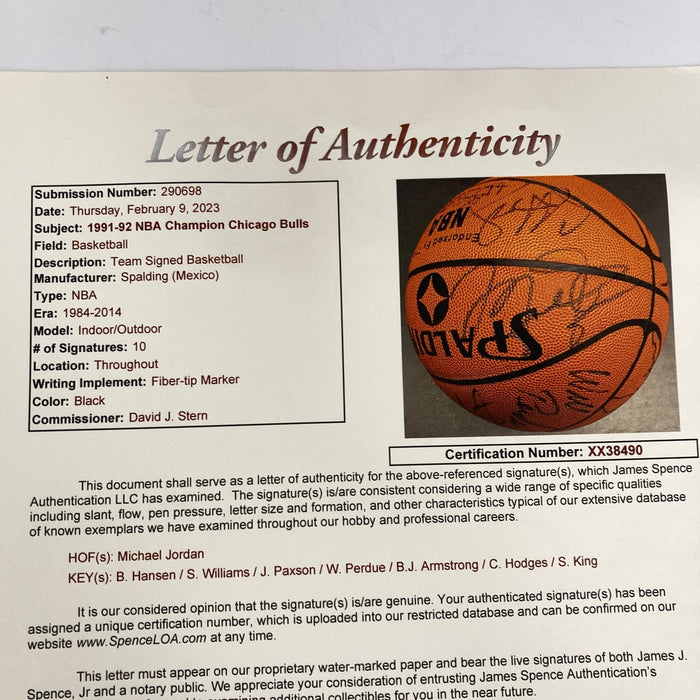 Letter of Authenticity
Submission Number: 290698
Date: Thursday, February 9, 2023
Subject: 1991-92 NBA Champion Chicago Bulls
Field: Basketball
Description: Team Signed Basketball
Manufacturer: Spalding (Mexico)
Type: NBA
Era: 1984-2014
Model: Indoor/Outdoor
# of Signatures: 10
Location: Throughout
Writing Implement: Fiber-tip Marker
Color: Black
Commissioner: David J. Stern
NBA
SPALDI
Certification Number: XX38490
This document shall serve as a letter of authenticity for the above-referenced signature(s), which James Spence
Authentication LLC has examined. The signature(s) is/are consistent considering a wide range of specific qualities
including slant, flow, pen pressure, letter size and formation, and other characteristics typical of our extensive database
of known exemplars we have examined throughout our hobby and professional careers.
HOF(s): Michael Jordan
KEY(s): B. Hansen / S. Williams / J. Paxson / W. Perdue / B.J. Armstrong / C. Hodges / S. King
It is our considered opinion that the signature(s) is/are genuine. Your authenticated signature(s) has been
assigned a unique certification number, which is uploaded into our restricted database and can be confirmed on our
website www.SpenceLOA.com at any time.
This letter must appear on our proprietary water-marked paper and bear the live signatures of both James J.
Spence, Jr and a notary public. We appreciate your consideration of entrusting James Spence Authentication's
examining additional collectibles for you in the near future.